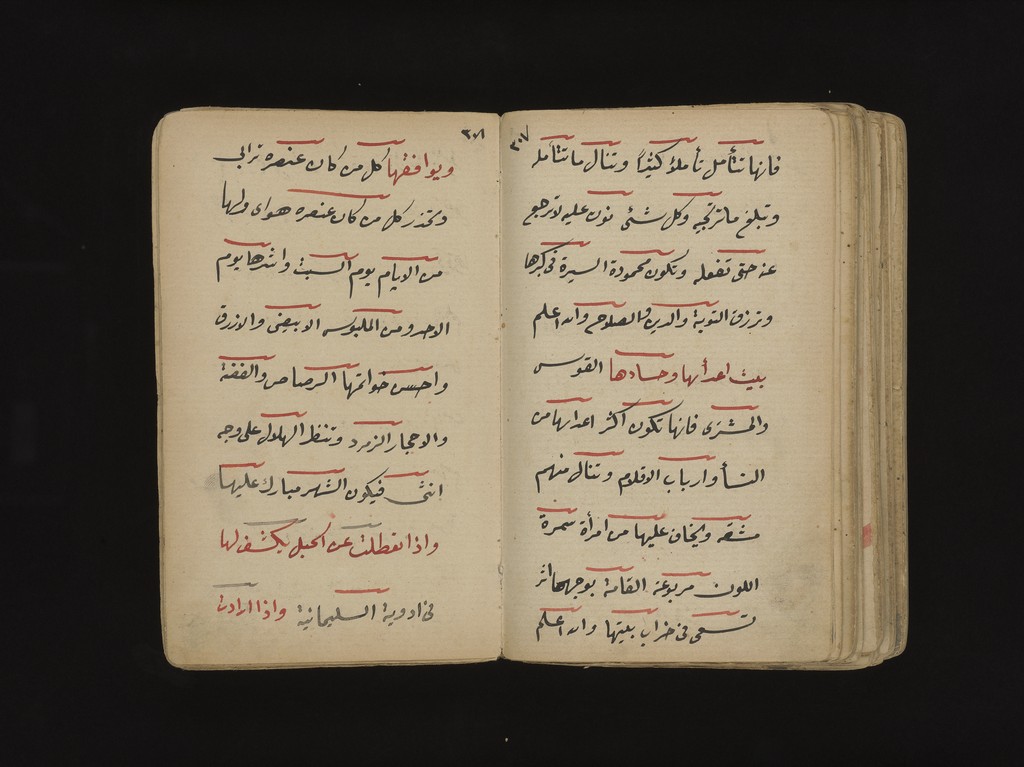 ٣٠٧
فانها تتأمل تأملاً كثيرًا وتنال ما تتأمله
وتبلغ ما ترتجيه وكل شئ نوت عليه لا ترجع
عنه حتى تفعله وتكون محمودة السيرة في كبرها
وترزق التوبة والدين والصلاح والله اعلم
بيت اعدأيها وحسادها القوس
والمشترى فانها تكون اكثر اعدايها من
النسأ وارباب الاقلام وتنال منهم
مشقه ويخاف عليها من امرأة سمرة
اللون مربوعة القامة بوجهها اثر
تسعى في خراب بيتها والله اعلم
٣٠٨
ويوافقها كل من كان عنصره ترابي
وتحذر كل من كان عنصره هواى ولها
من الايام يوم السبت واشدها يوم
الاحد ومن الملبوس الابيض والازرق
واحسن خواتمها الرصاص والفضة
والاحجار الزمرد وتنظر الهلال على وجه
انثى فيكون الشهر مبارك عليها
واذا تعطلت عن الحبل يكشف لها
في ادوية السليمانية واذا ارادت